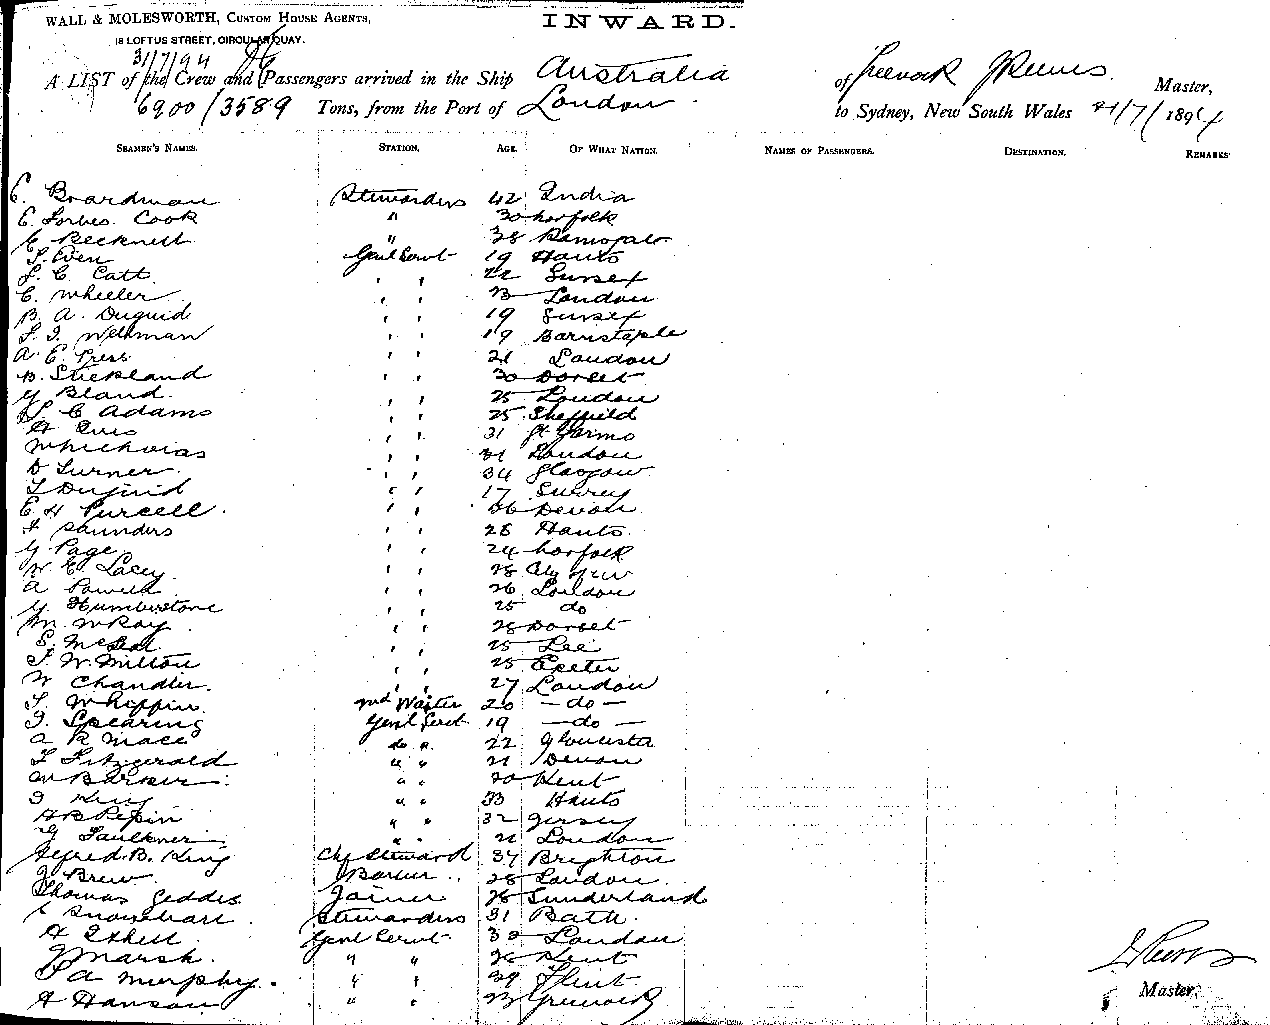 WALL & MOLESWORTH, CUSTOM HOUSE AGENTS,
INWARD.
18 LOFTUS STREET, CIRCULAR QUAY.
31/7/94
A LIST of the Crew and Passengers arrived in the Ship Australia of Greenock J Reeves Master,
6900/3589 Tons, from the Port of London to Sydney, New South Wales 31/7/1894
SEAMEN'S NAMES. STATION. AGE. OF WHAT NATION. NAMES OF PASSENGERS. DESTINATION. REMARKS
E. Boardman Stewardess 42 India
E. Forbes Cook " 30 Norfolk
E Becknell " 38
S. Even Genl Servt 19 Hants
S. C. Catt " " 22 Sussex
C. Wheeler " " 23 London
B. A. Duguid " " 19 Sussex
S. J. Wellman " " 19 Barnstaple
A. E. Press " " 21 London
B. Stickland " " 30 Dorset
G Bland " " 25 London
S C Adams " " 25 Sheffield
" " 31 Gt Yarmo
" " 31 London
D Turner " " 34 Glasgow
T Duguid " " 17 Surrey
E H Purcell " " 26 Devon
A Saunders " " 28 Hants
G Page " " 24 Norfolk
W E Lacey " " 28
A Powell " " 26 London
G Humberstone " " 25 do
M. McKay " " 28 Dorset
" " 25 Lee
S. W. Milton " " 25 Exeter
W Chandler " " 27 London
T. Whippin Waiter 20 — do —
J. Spearing Genl Servt 19 — do —
A R Mace do " 22 Gloucester
T Fitzgerald " " 21 Devon
W Barker " " 20 Kent
J King " " 33 Hants
H B Pepin " " 32 Jersey
G Faulkner " " 21 London
Alfred B. King Chf Steward 37 Brighton
J Brew Barber 28 London
Thomas Geddes Joiner 28 Sunderland
Stewardess 31 Bath
A Ethell Genl Servt 30 London
J Marsh " " 26 Kent
P A Murphy " " 39 Flint
A Hanson " " 23 Greenock
J Reeves
Master.